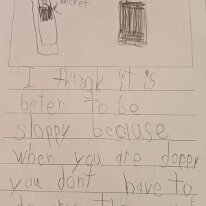 I think it's
beter to be
sloppy because
when you are sloppy
you dont have to